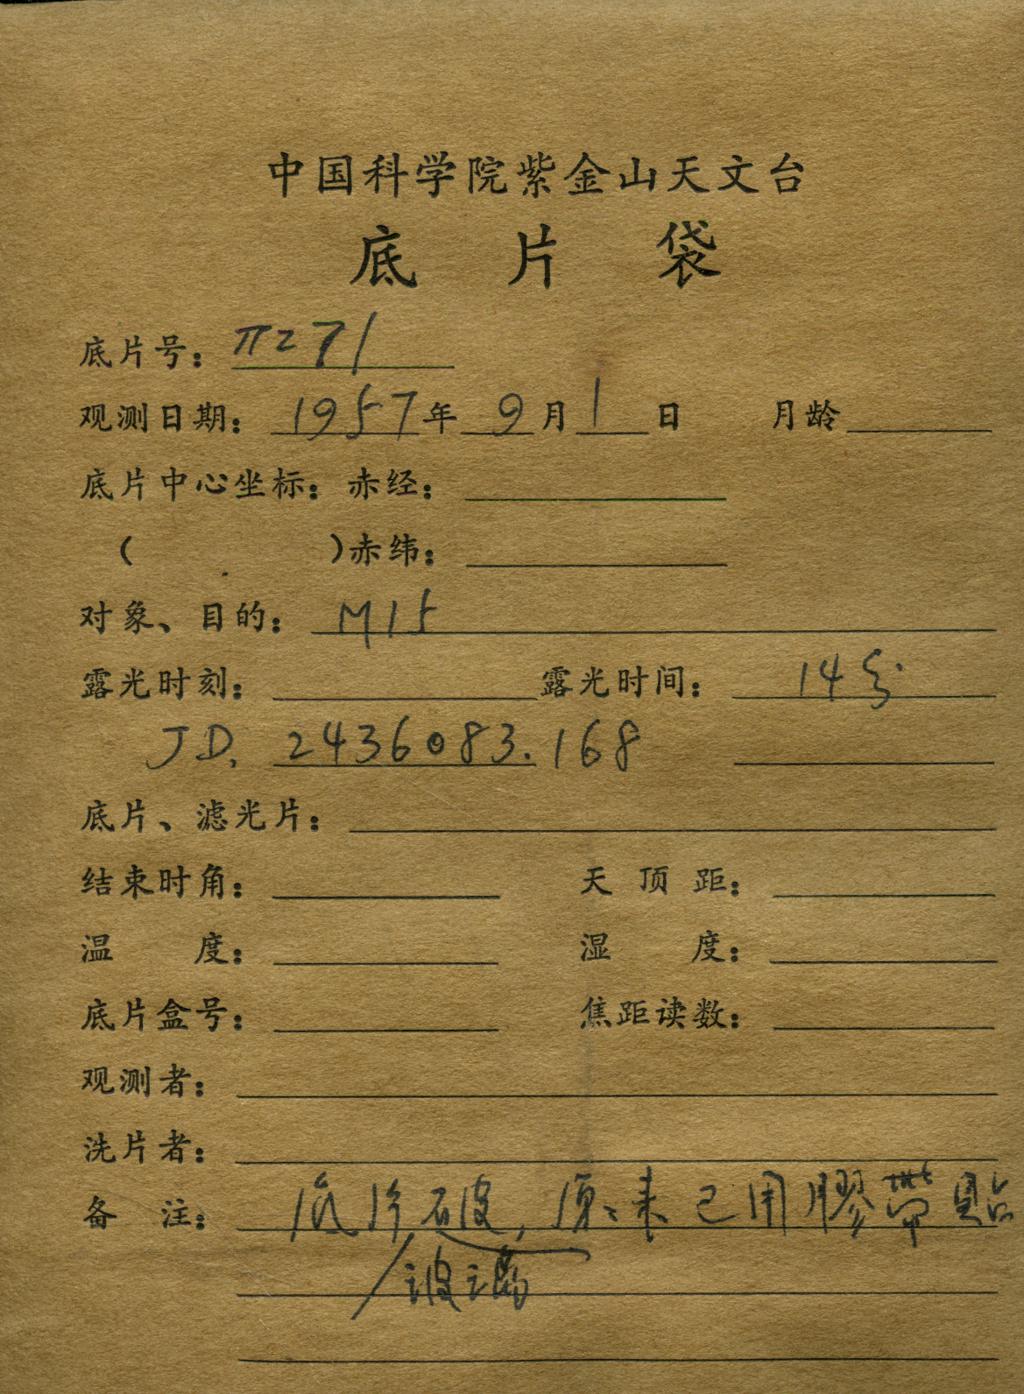 中国科学院紫金山天文台
底片袋
底片号： π271
观测日期： 1957年 9月 1日 月龄
底片中心坐标：赤经：
( )赤纬：
对象、目的： M15
露光时刻： 露光时间： 14分
JD. 2436083.168
底片、滤光片：
结束时角： 天顶距：
温度： 湿度：
底片盒号： 焦距读数：
观测者：
洗片者：
备注： 底片破，原来已用膠帶貼
玻璃